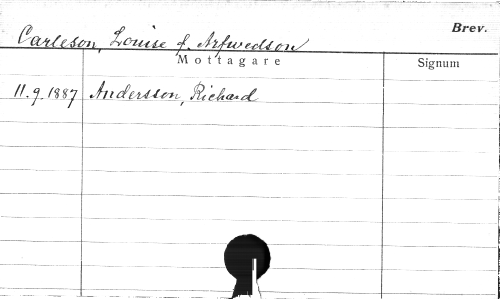 Brev.
Carleson, Louise f. Arfwedson
Mottagare Signum
11.9.1887 Andersson, Richard